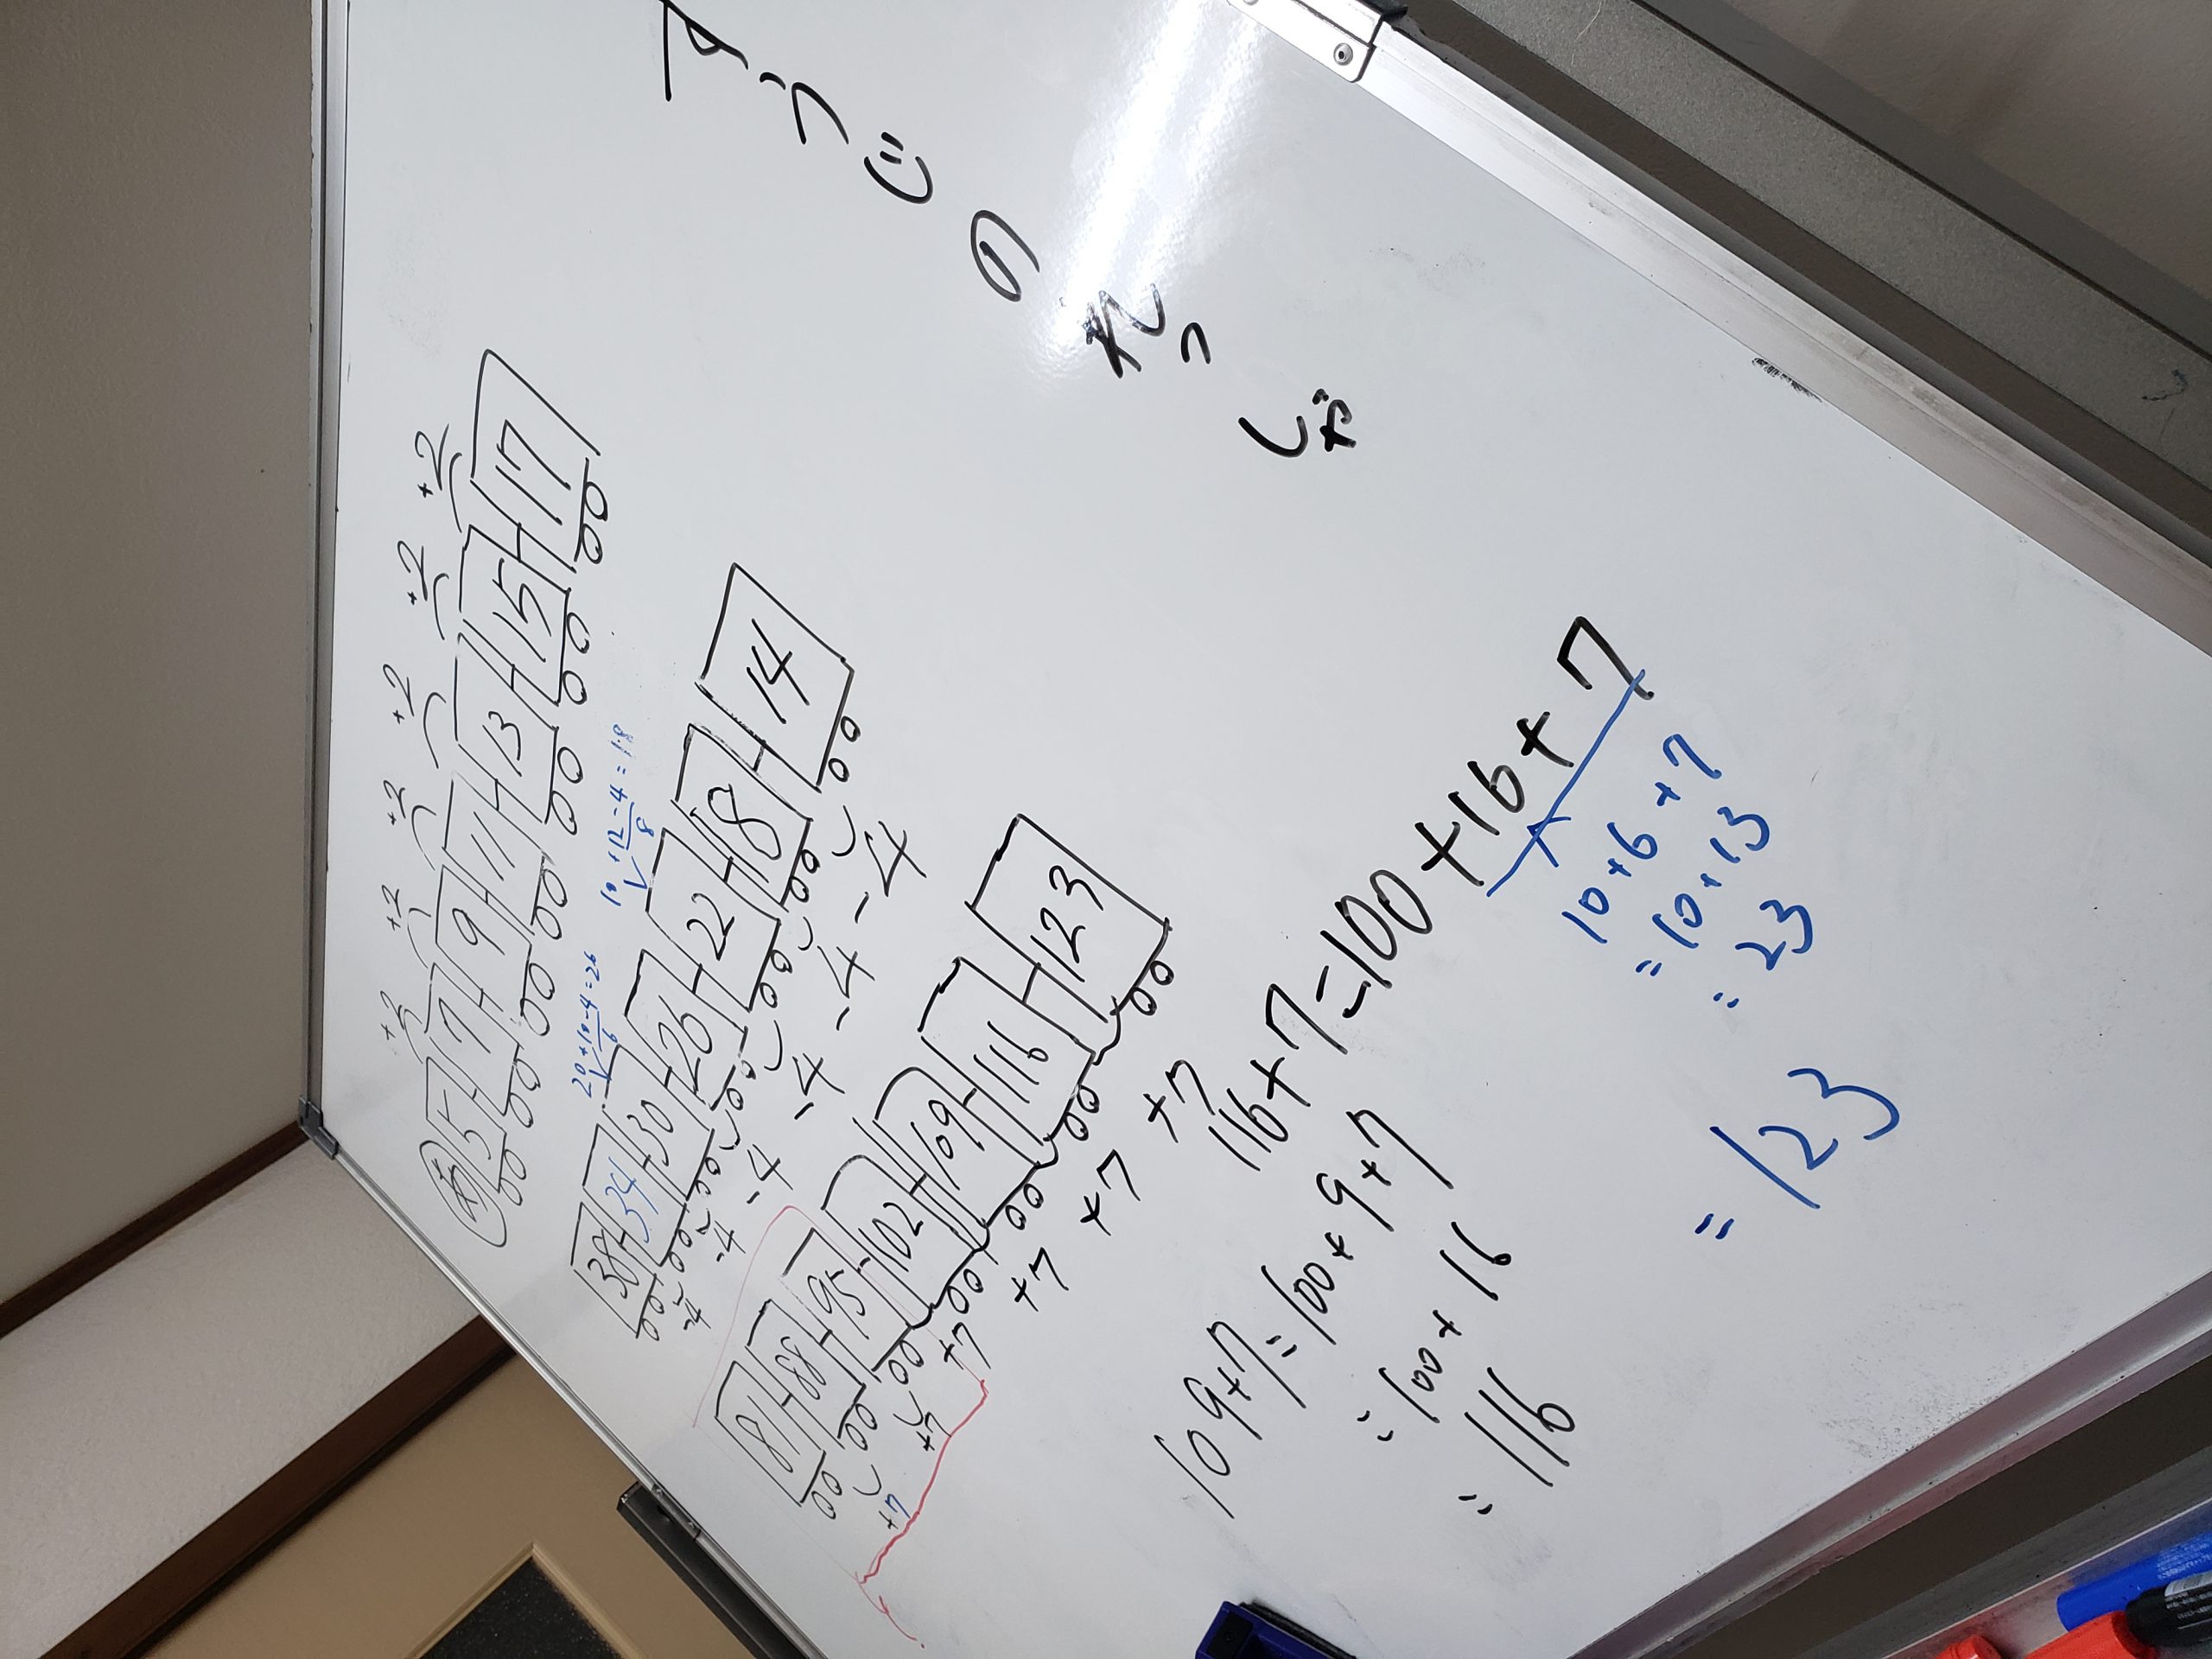 すうじのれっしゃ
+2 +2 +2 +2 +2 +2
5 7 9 11 13 15 17
20+10-4=26
6
10+12-4=18
8
38 34 30 26 22 18 14
-4 -4 -4 -4 -4 -4
81 88 95 102 109 116 123
+7 +7 +7 +7 +7 +7
109+7=100+9+7
=100+16
=116
116+7=100+16+7
10+6+7
=10+13
=23
=123